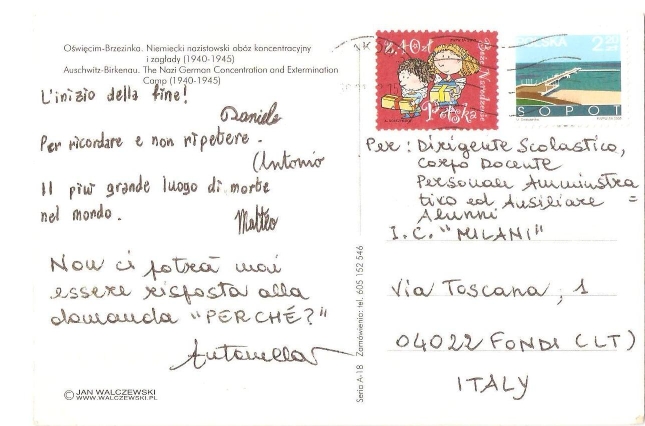 Oświęcim-Brzezinka. Niemiecki nazistowski obóz koncentracyjny
i zagłady (1940-1945)
Auschwitz-Birkenau. The Nazi German Concentration and Extermination
Camp (1940-1945)
L'inizio della fine!
Daniele
Per ricordare e non ripetere.
Antonio
Il più grande luogo di morte
nel mondo.
Matteo
Non ci potrà mai
essere risposta alla
domanda "PERCHÉ?"
Antonella
© JAN WALCZEWSKI
WWW.WALCZEWSKI.PL
Seria A-18 Zamówienia: tel. 605 152 546
2,40zł
Boże Narodzenie
Polska
POLSKA
2
SOPOT
Per: Dirigente Scolastico,
Corpo Docente
Personale Amministra
tivo ed Ausiliare =
Alunni
I.C. "MILANI"
Via Toscana, 1
04022 FONDI (LT)
ITALY